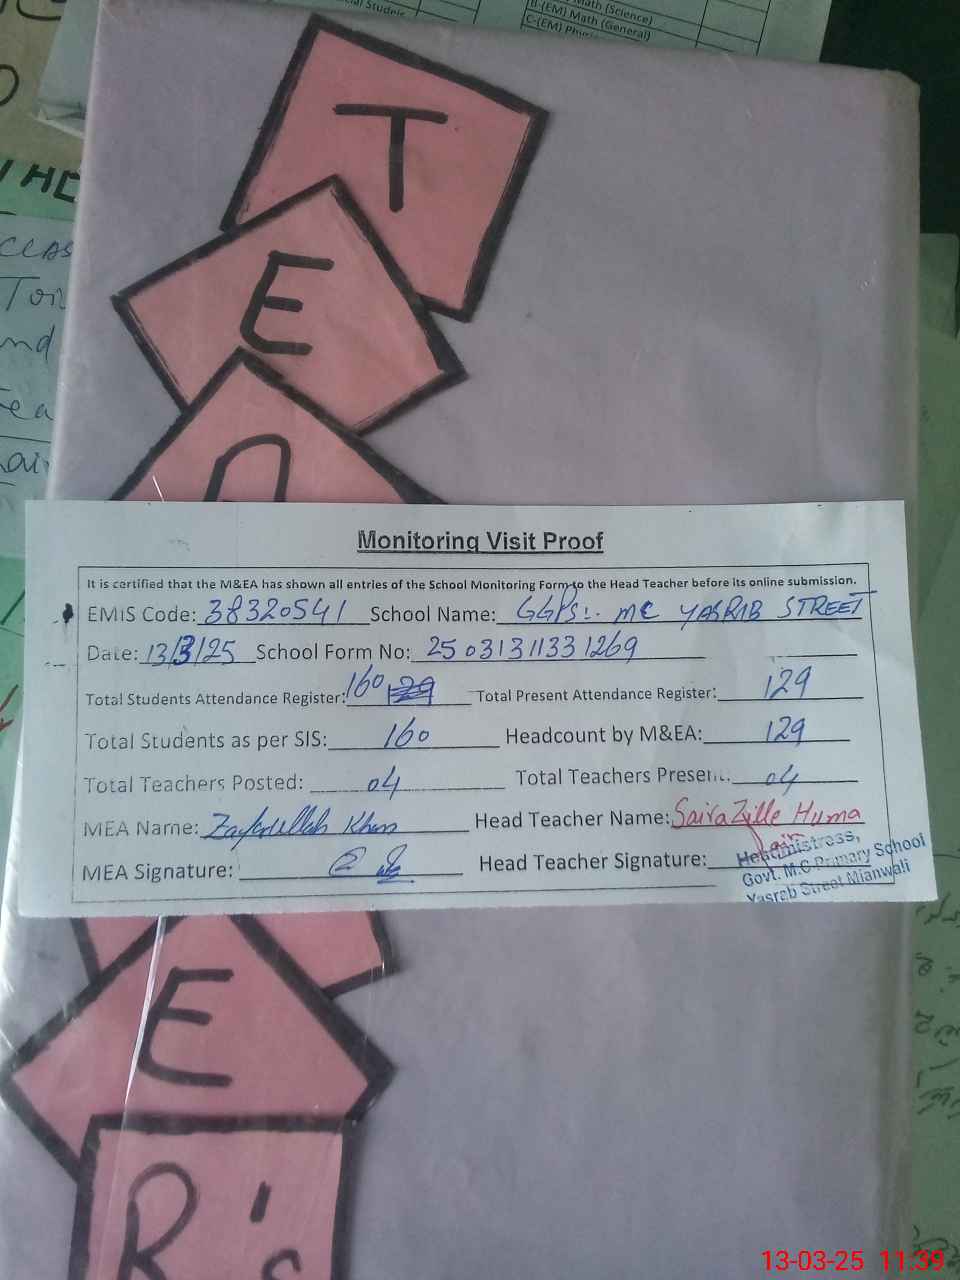 Math (Science)
B-(EM) Math (General)
T
E
A
Monitoring Visit Proof
It is certified that the M&EA has shown all entries of the School Monitoring Form to the Head Teacher before its online submission.
EMIS Code: 38320541 School Name: GGPS:. MC YASRAB STREET
Date: 13/3/25 School Form No: 25031311331269
Total Students Attendance Register: 160 129 Total Present Attendance Register: 129
Total Students as per SIS: 160 Headcount by M&EA: 129
Total Teachers Posted: 04 Total Teachers Present: 04
MEA Name: Khan Head Teacher Name: Saira Zille Huma
MEA Signature: Head Teacher Signature:
Headmistress,
Govt. M.C Primary School
Yasrab Street Mianwali
E
R's
13-03-25 11:39